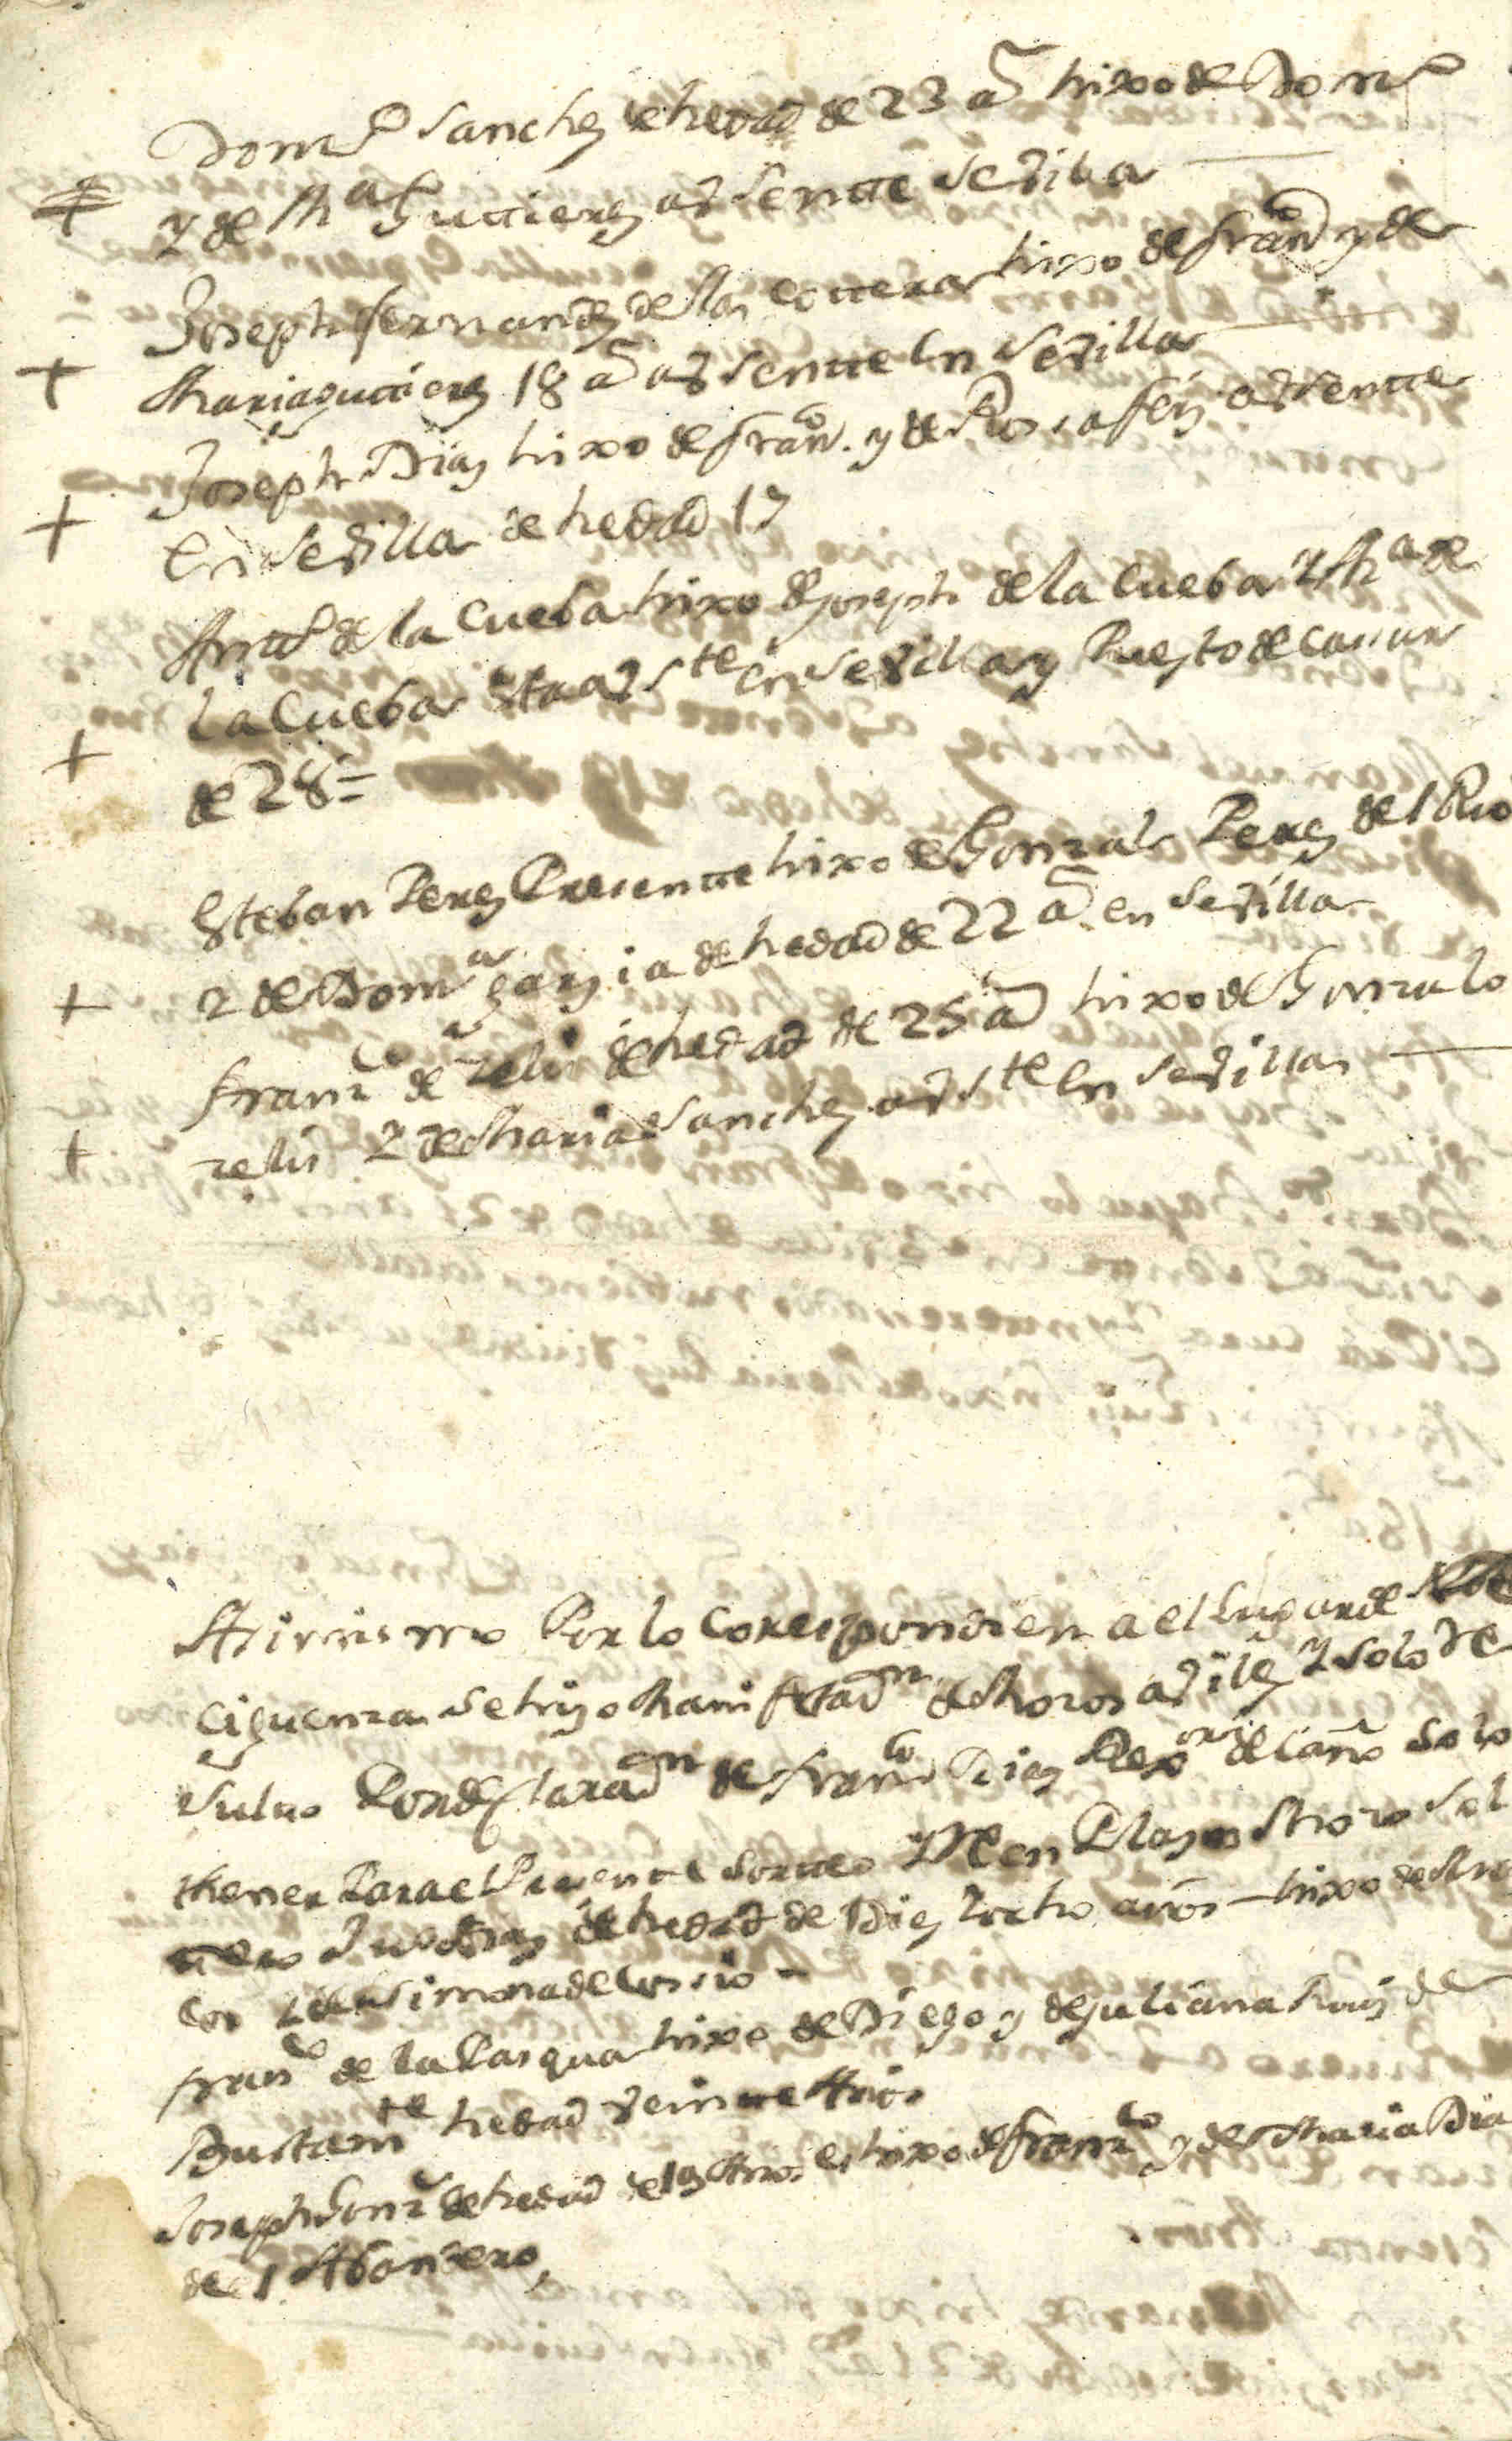 Domᵒ Sanchez de hedad de 23 aˢ hixo de Domᵒ
+ y de Mᵃ Guttierez avsentte Sevilla
Joseph fernandez de las cotteras hixo de franᶜᵒ y de
+ Maria guttierez 18 aˢ avsentte en Sevilla
Joseph Diaz hixo de franᶜᵒ. y de Rosa frz avsentte
+ en Sevilla de hedad 17
Anttᵒ de la Cueba hixo de Joseph de la Cueba y Mᵃ de
la Cueba Sta avSᵗᵉ en Sevilla y Puesto de
+ de 28 =
Esteban Perez Precentte hixo de Gonzalo Perez del Rio
+ y de Domᵃ garzia de hedad de 22 aˢ en Sevilla
franᶜᵒ de zelis de hedad de 25 aˢ hixo de Gonzalo
+ zelis y de Maria Sanchez avSᵗᵉ en Sevilla
Asimismo Por lo Corespondien a el lugar de
Ciguenza se hizo Manifestadⁿ de Mozos avilez y solo
Por declaradⁿ de franᶜᵒ Diaz Rexᵒʳ de el año solo
thener Para el Presente Sorteo Mozo Sol
tero Diaz de hedad de Diez y ocho años hixo de
y de Simona de Cossio =
franᶜᵒ de la Pasqua hixo de Diego y de Juliana Ruiz de
Bustamᵗᵉ hedad veintte Años
Joseph Gonz de hedad de 19 Años es hixo de franᶜᵒ y de Maria Dia
del Abandero